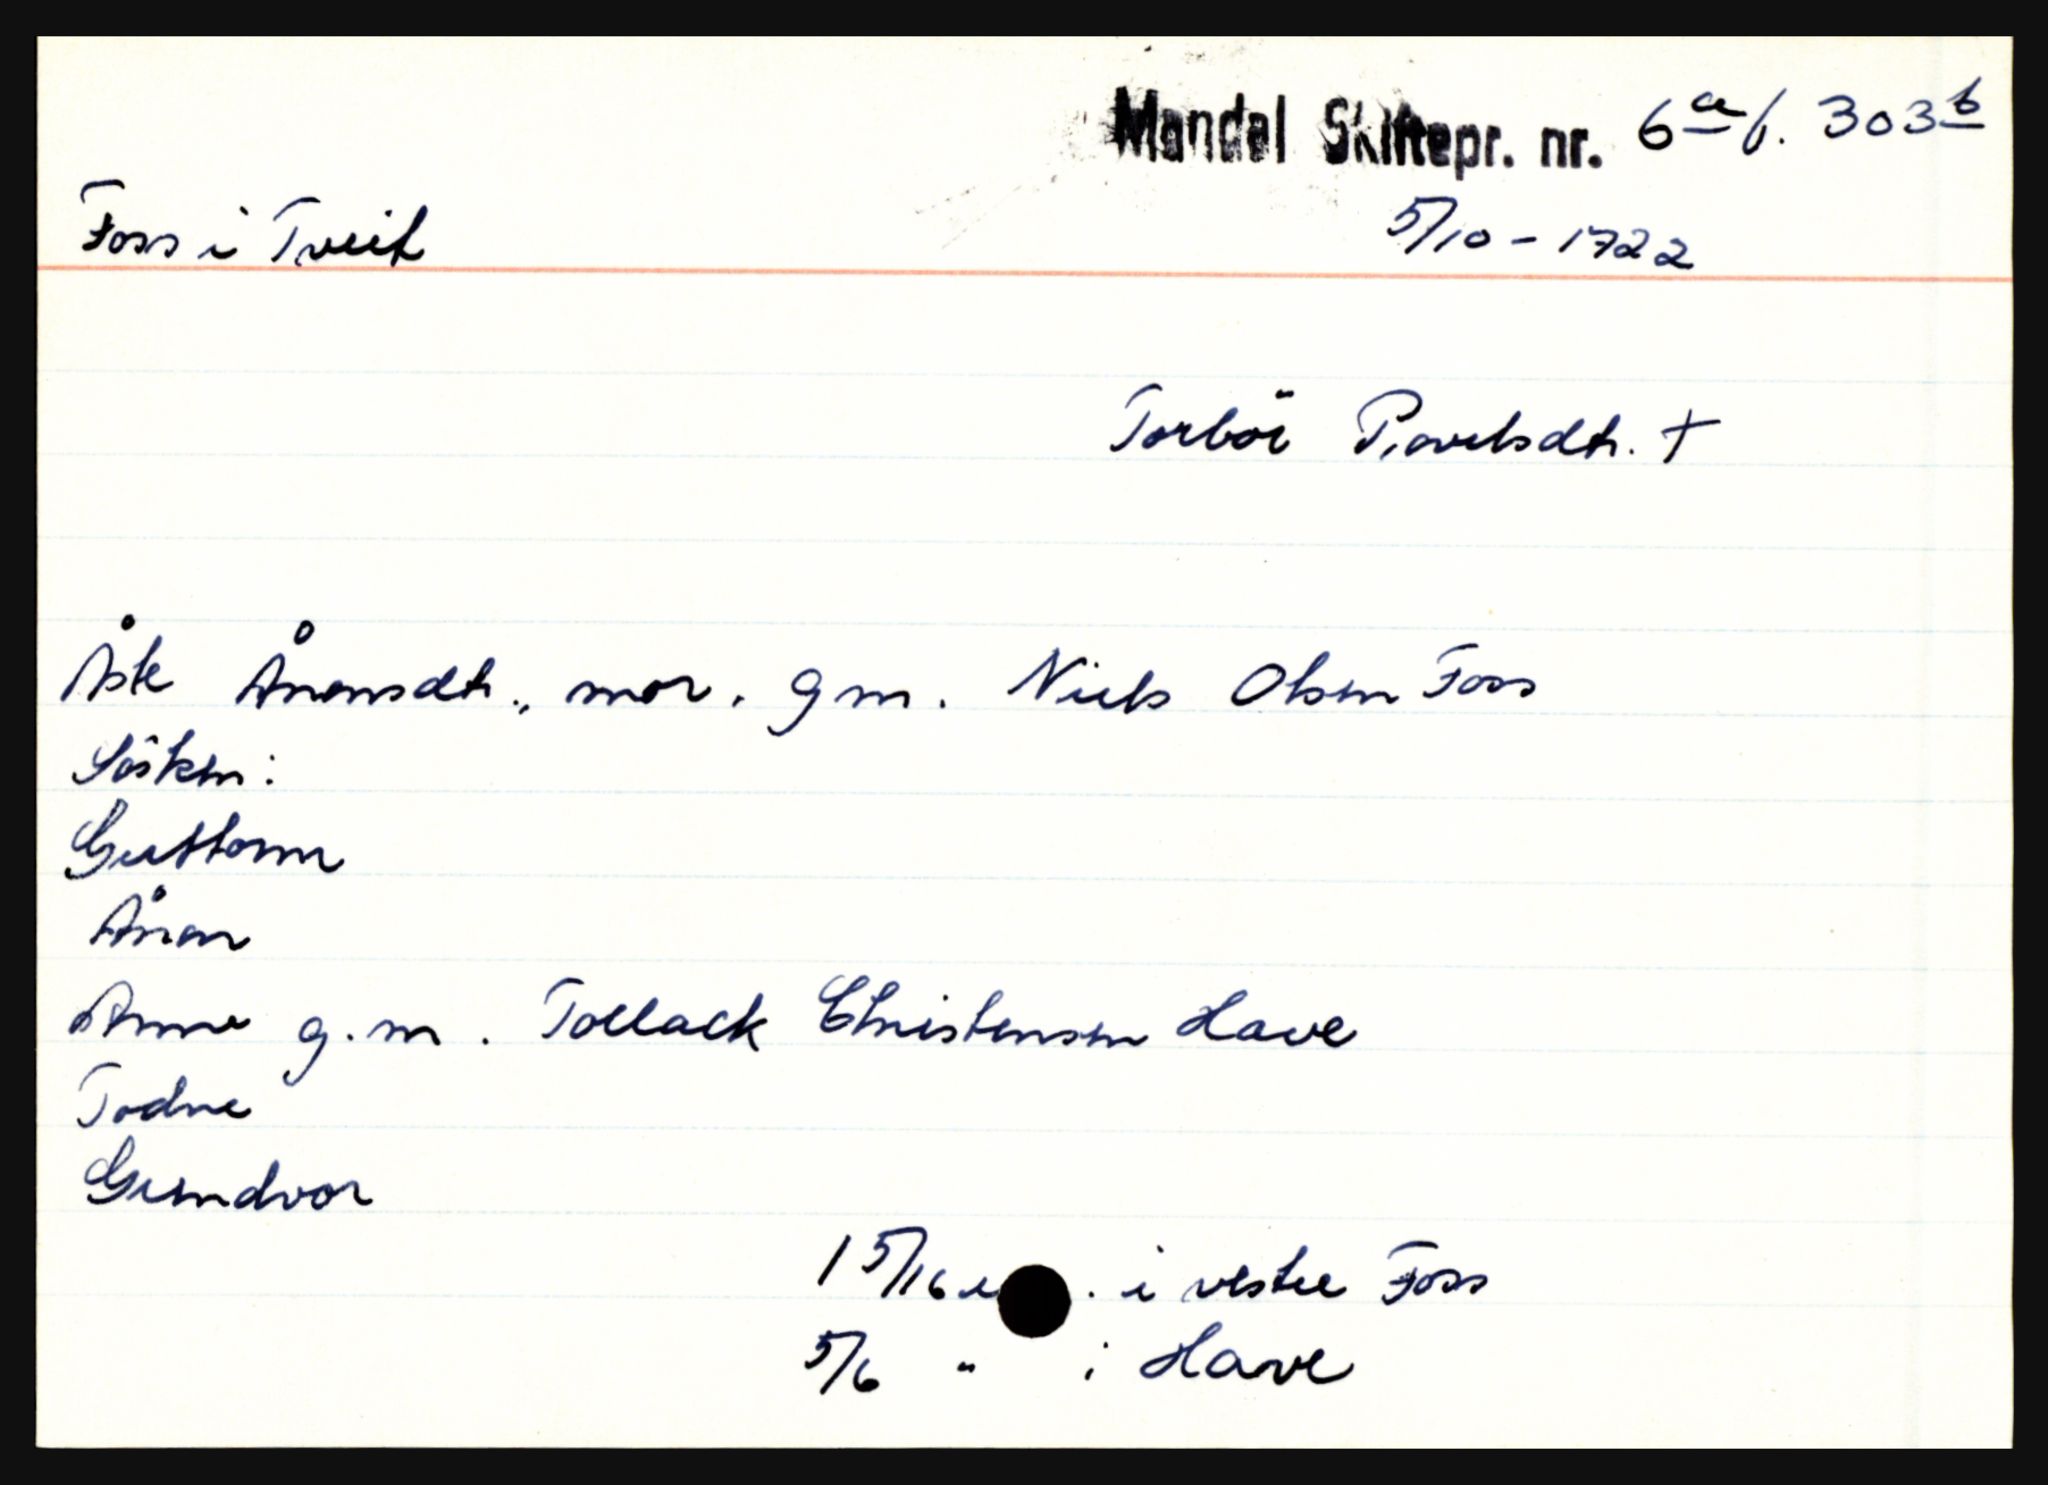 Mandal Skiftepr. nr. 6a f. 303b
Foss i Tveit
5/10 - 1722
Torböi P. ovelsdtr. +
Åste Ånonsdtr., mor. g m. Niels Olsen Foss
Sösken:
Guttorm
Ånon
Anne g. m. Tollack Christensen Have
Todne
Gundvor
1 5/16 i vestre Foss
5/6 " i Have